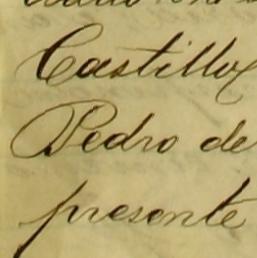 Castillo
Pedro de
presente